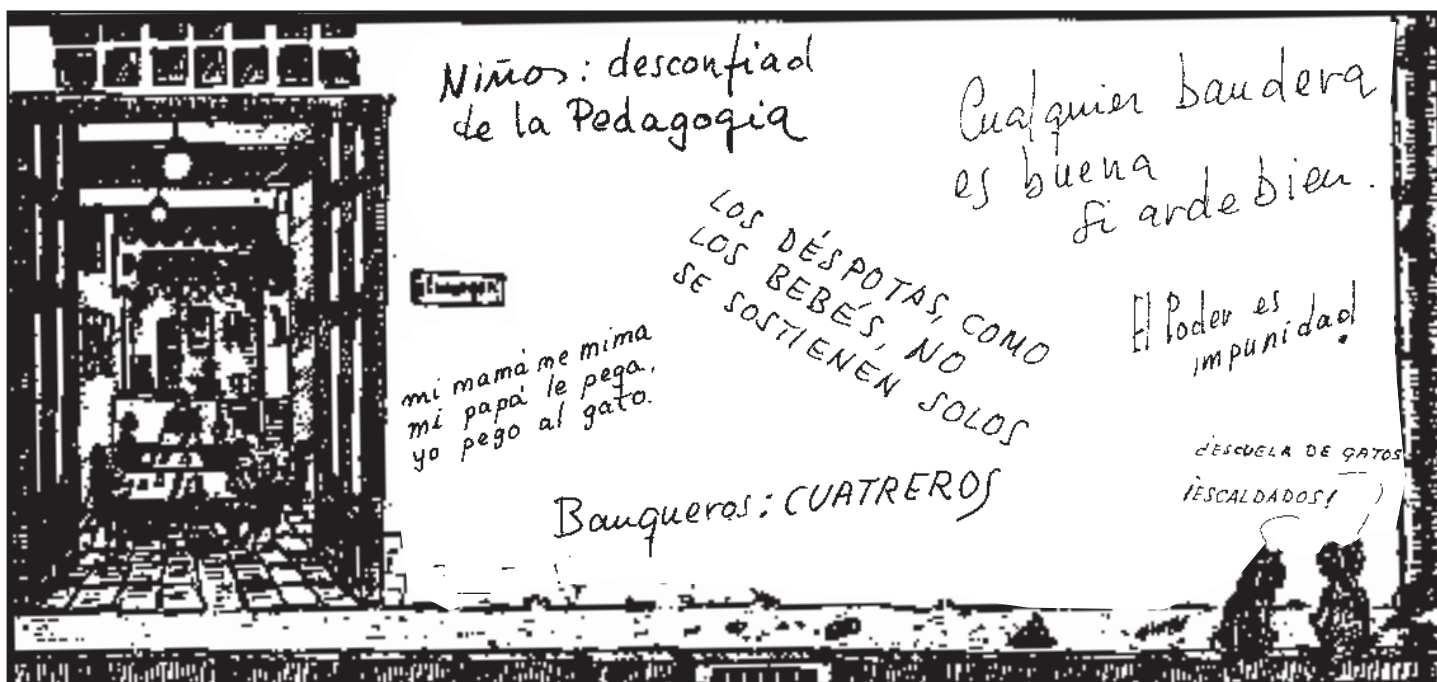 Niños: desconfiad
de la Pedagogia
Cualquier bandera
es buena
si arde bien.
LOS DÉSPOTAS, COMO
LOS BEBÉS, NO
SE SOSTIENEN SOLOS
El Poder es
impunidad.
mi mamá me mima
mi papá le pega,
yo pego al gato.
Banqueros: CUATREROS
¿ESCUELA DE GATOS
¡ESCALDADOS!